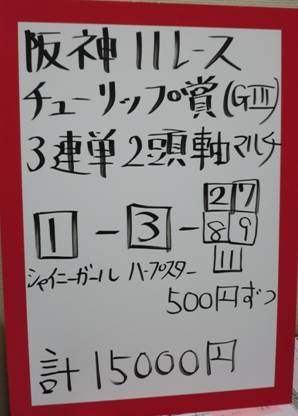 阪神11レース
チューリップ賞(GIII)
3連単2頭軸マルチ
1-3-27
89
11
シャイニーガール ハープスター
500円ずつ
計15000円